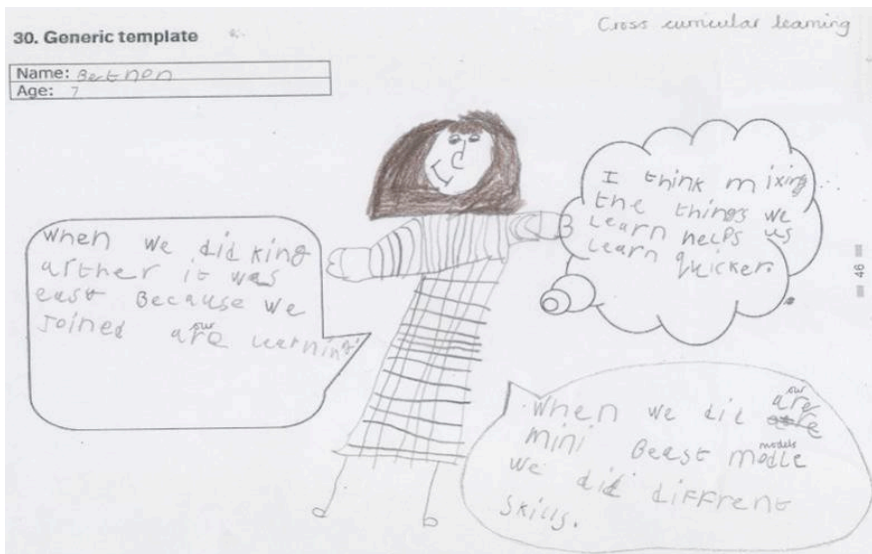 Cross curricular learning
30. Generic template
Name:
Age: 7
When we did king
arther it was
east Because we
Joined are our learning
I think mixing
the things we
Learn helps us
Learn quicker.
46
When we did are our
mini Beast modle models
we did diffrent
skills.